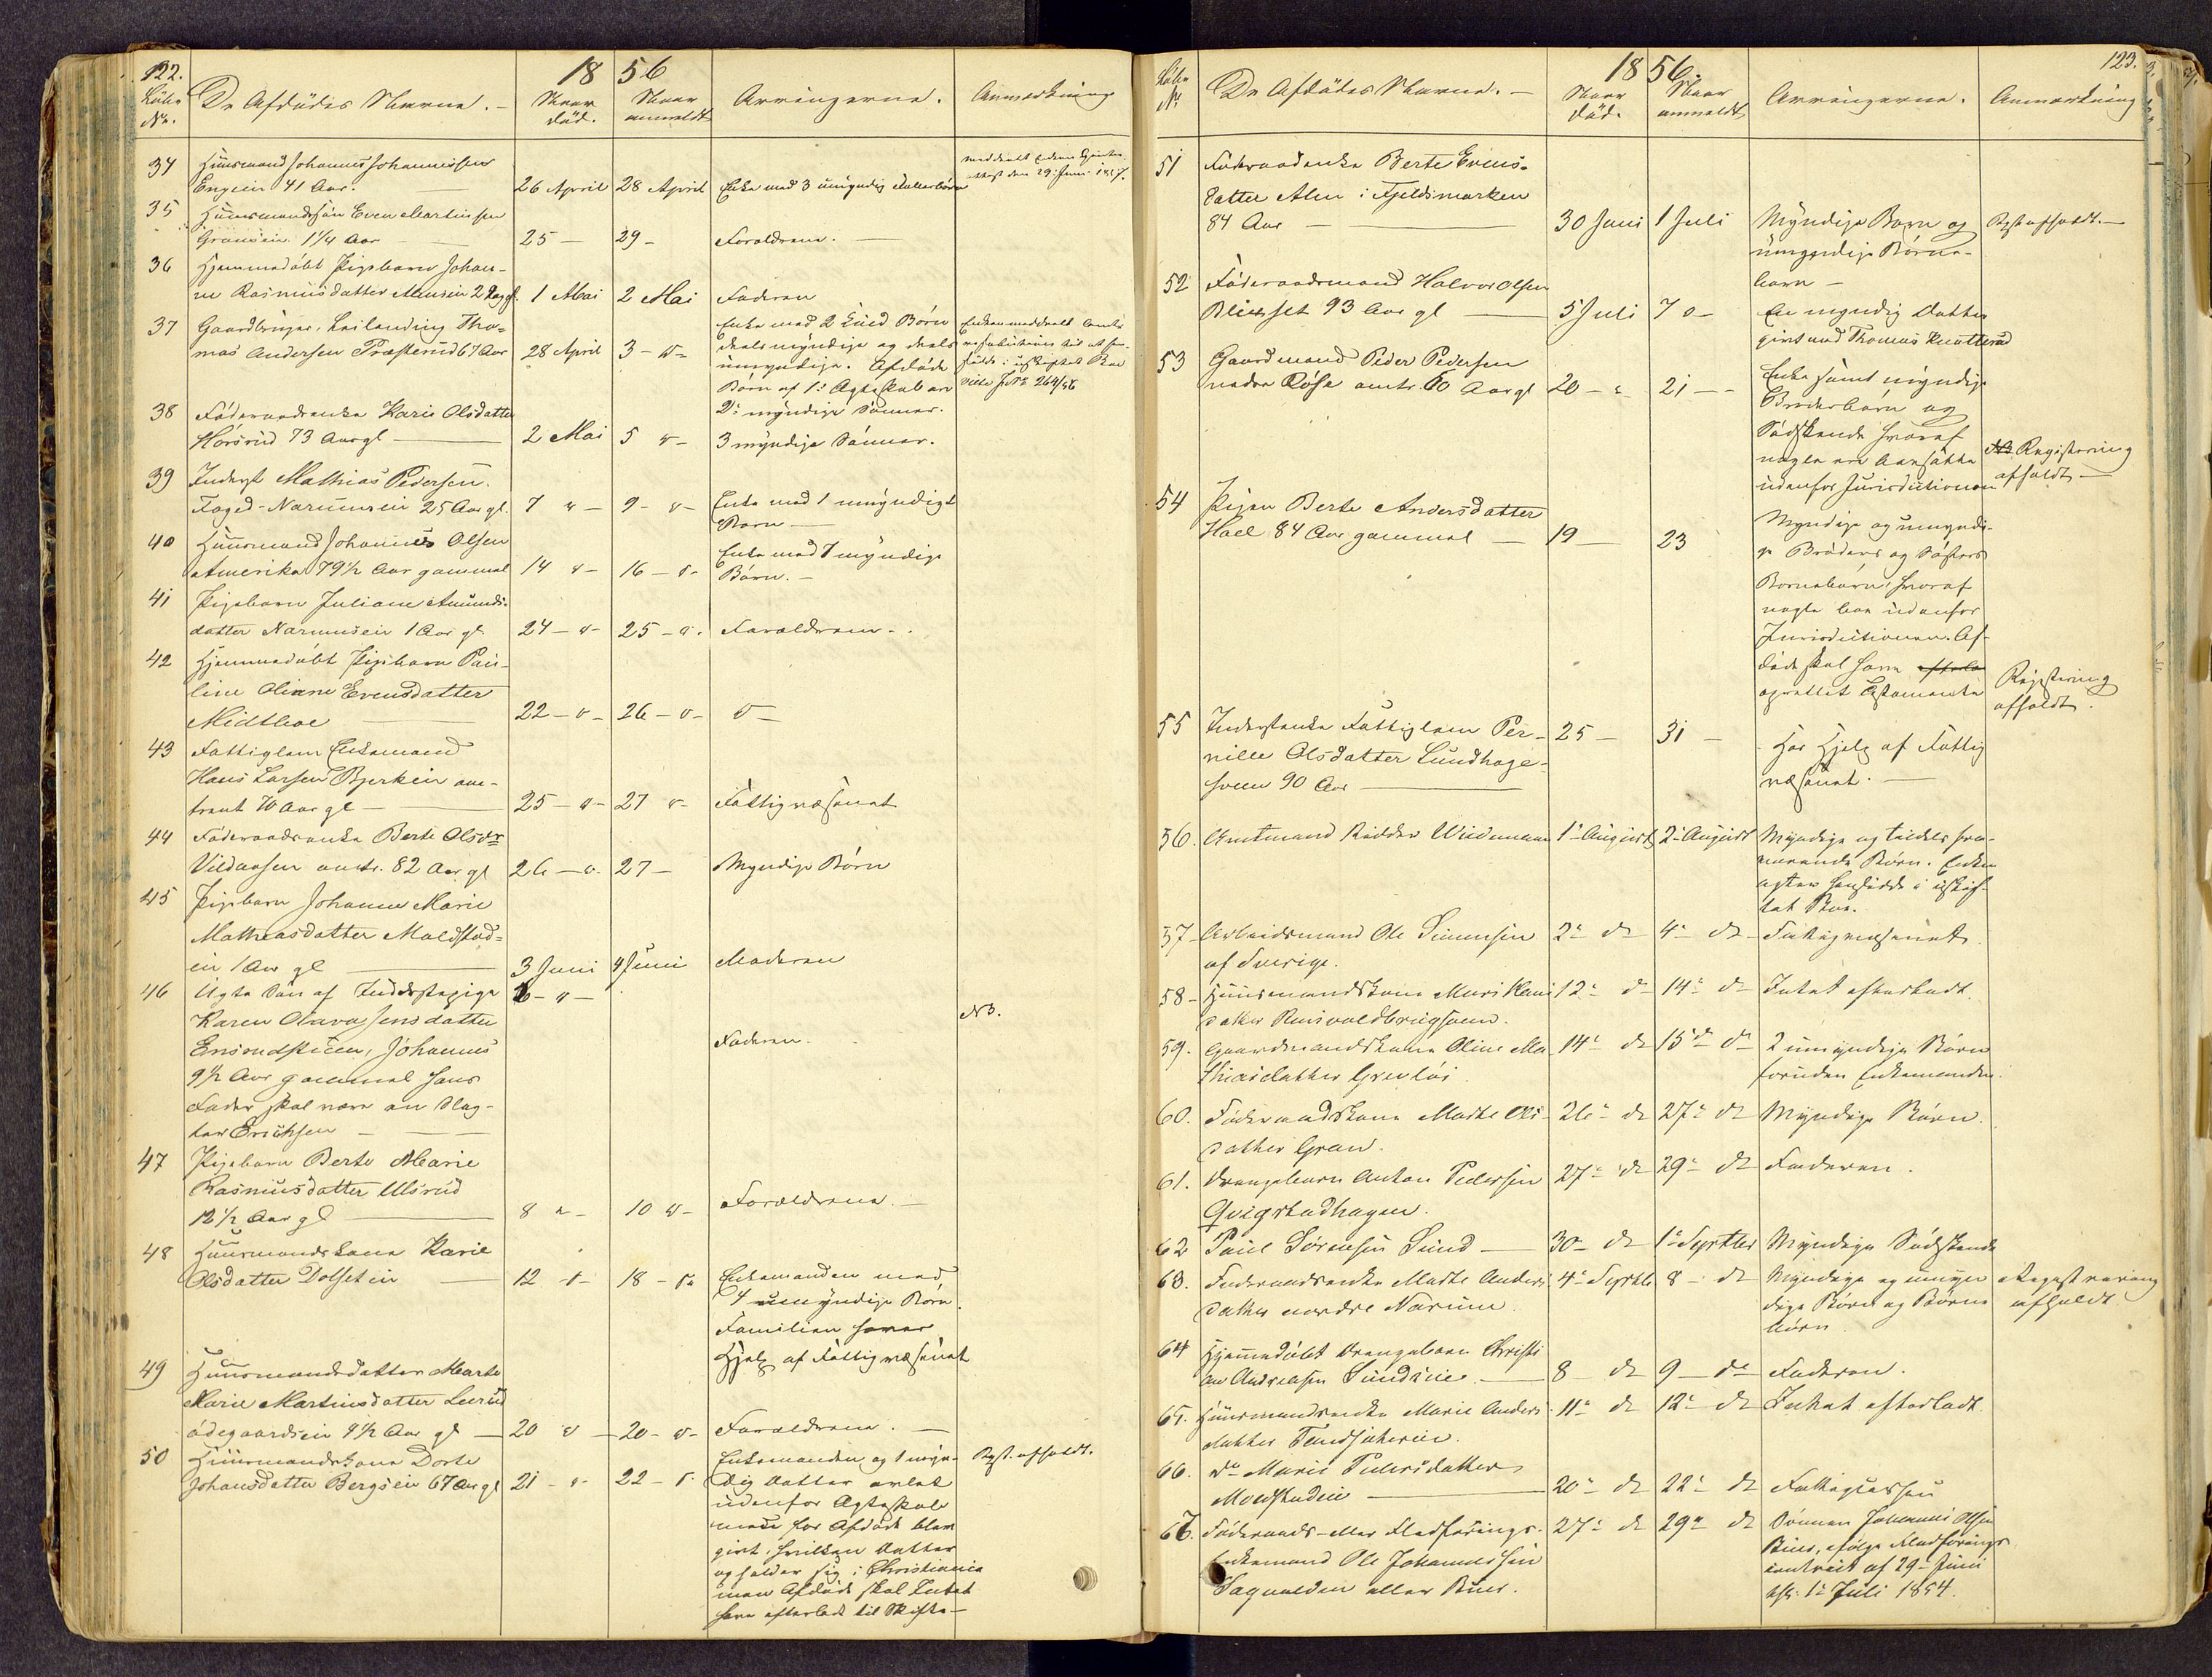 122.
1856
Løbe No.
De Afdødes Navne. —
Naar død.
Naar anmeldt
Arvingerne.
Anmærkning
34
Huusmand Johannes Johannessen
Engeien 41 Aar.
26 April
28 April
Enke med 3 umyndig Fællesbørn
meddeelt Enken
attest den 29 Juni 1857.
35
Huusmandssøn Even Martinsen
Grønseie 1 1/4 Aar
25 —
29 —
Forældrene. —
36
Hjemmedøbt Pigebarn Johan-
ne Rasmusdatter 2 Dag gl.
1 Mai
2 Mai
Faderen
37
Gaardbruger, Leilænding Tho-
mas Andersen Præsterud 67 Aar
28 April
3 — " —
Enke med 2 Kuld Børn
deels myndige og deels
umyndige. Afdøde
Børn af 1: Ægteskab ere
2: myndige Sønner.
Enken meddeelt Amts
resolution til at hen-
sidde i uskiftet Boe
vide J No 264/56
38
Føderaadsenke Karie Olsdatter
Horsrud 73 Aar gl —
2 Mai
5 " —
3 myndige Sønner.
39
Inderst Mathias Pedersen
Foged-Narumseie 25 Aar gl.
7 " —
9 — " —
Enke med 1 umyndigt
Barn —
40
Huusmand Johannes Olsen
Amerika 79 1/2 Aar gammel
14 " —
16 — " —
Enke med 7 myndige
Børn. —
41
Pigebarn Juliane Amunds-
datter Narumseie 1 Aar gl
24 — " —
25 — " —
Forældrene. .
42
Hjemmedøbt Pigebarn Pau-
line Oliane Evensdatter
Midtboe
22 — " —
26 — " —
" —
43
Fattiglem Enkemand
Hans Larsen Bjerkeie om-
trent 70 Aar gl —
25 — " —
27 " —
Fattigvæsenet
44
Føderaadsenke Berte Olsdr
Vildaasen omtr. 82 Aar gl
26 — "
27 —
Myndige Børn
45
Pigebarn Johanne Marie
Mathiasdatter Molstad-
eie 1 Aar gl
3 Juni
4 Juni
Moderen
46
Uægte Søn af Inderstpige
Karen Olava Jensdatter
Ensrudstuen, Johannes
9 1/2 Aar gammel hans
Fader skal være en Slag-
ter Erichsen —
6 — " —
Faderen.
NB.
47
Pigebarn Berte Marie
Rasmusdatter Ulsrud
12 1/2 Aar gl
8 " —
10 " —
Forældrene. —
48
Huusmandskone Karie
Olsdatter Dolseteie
12 " —
18 — " —
Enkemanden med
4 umyndige Børn.
Familien haver
Hjelp af Fattigvæsenet
49
Huusmandsdatter Marte
Marie Martinsdatter Leerud
ødegaardseie 9 1/2 Aar gl —
20 " —
20 — " —
Forældrene. —
50
Huusmandskone Dorte
Johansdatter Bergseie 67 Aar gl
21 — " —
22 — "
Enkemanden og 1 myn-
dig Datter avlet
udenfor Ægteskab
inden før Afdøde blev
givt, hvilken Datter
opholder sig i Christiania
men Afdøde skal Intet
have efterladt til Skifte —
Regst. afholdt.
123.
1856
Løbe No
De Afdødes Navne. —
Naar død.
Naar anmeldt
Arvingerne.
Anmærkning
51
Føderaadsenke Berte Evens-
datter Alm i Fjeldsmarken
84 Aar —
30 Juni
1 Juli
Myndige Børn og
umyndige Børne-
børn —
Regst afholdt. —
52
Føderaadsmand Halvor Olsen
Blixset 93 Aar gl —
5 Juli
7 " —
En myndig Datter
givt med Thomas Knatterud
53
Gaardmand Peder Pedersen
nedre Røse omtr. 60 Aar gl
20 — "
21 — —
Enke samt myndige
Broderbørn og
Sødskende hvoraf
nogle ere bosatte
udenfor Jurisdictionen
Registering
afholdt —
54
Pigen Berte Andersdatter
Hoel 84 Aar gammel —
19 —
23
Myndige og umyndi-
ge Brøders og Søsters
Børnebørn, hvoraf
nogle boe udenfor
Jurisdictionen. Af-
døde skal have
oprettet Testamente
Registering
afholdt.
55
Inderstenke Fattiglem Per-
nille Olsdatter Lundhage-
hven 90 Aar
25 —
31 —
Har Hjelp af Fattig
væsenet. —
56.
Amtmand Ridder Wiedemann
1: August
2: August
Myndige og tildels fra-
værende Børn. Enken
agter hensidde i uskif-
tet Boe.
57
Arbeidsmand Ole Simensen
af Sverige.
2: do
4: do
Fattigvæsenet.
58 —
Huusmandskone Mari Hans
datter
12: do
14: do
Intet efterladt.
59.
Gaardmandskone Oline Ma-
thiasdatter Grevløs.
14: do
15: do
2 umyndige Børn
foruden Enkemanden.
60.
Føderaadskone Marte Ols-
datter Gran.
26: do
27: do
Myndige Børn.
61.
Drengebarn Anton Pedersen
Qvigstadhagen.
27: do
29: do
Faderen.
62
Paul Sørensen Sund —
30 — do
1: Septbr
Myndige Sødskende
63.
Føderaadsenke Marte Anders
datter nordre Narum
4: Septb.
8 — do
Myndige og umyn
dige Børn og Børne
børn
Registrering
afholdt
64
Hjemmedøbt Drengebarn Christi
an Andreasen Sundseie. —
8 — do
9 — do
Faderen.
65.
Huusmandsenke Marie Anders
datter
11: do
12: do
Intet efterladt.
66.
do Marie Pedersdatter
Moestadeie
20: do
22: do
Fattigkassen
67.
Føderaads- eller Fledførings-
Enkemand Ole Johannessen
Sagvolden eller Buer.
27: do
29: do
Sønnen Johannes Olsen
Buer, ifølge Fledførings
contract af 29 — Juni
1: Juli 1854.